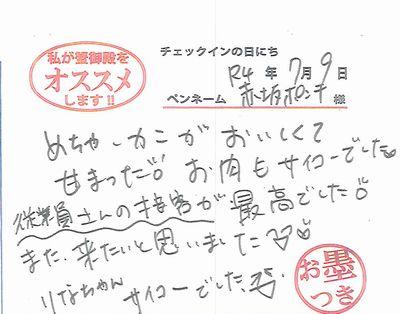 私が蟹御殿を
オススメ
します!!
チェックインの日にち
R4年7月9日
ペンネーム 赤坂ポンチ 様
めちゃカニがおいしくて
甘まった!! お肉もサイコーでした
従業員さんの接客が最高でした!!
また、来たいと思いました
りなちゃん サイコーでした、
お墨
つき